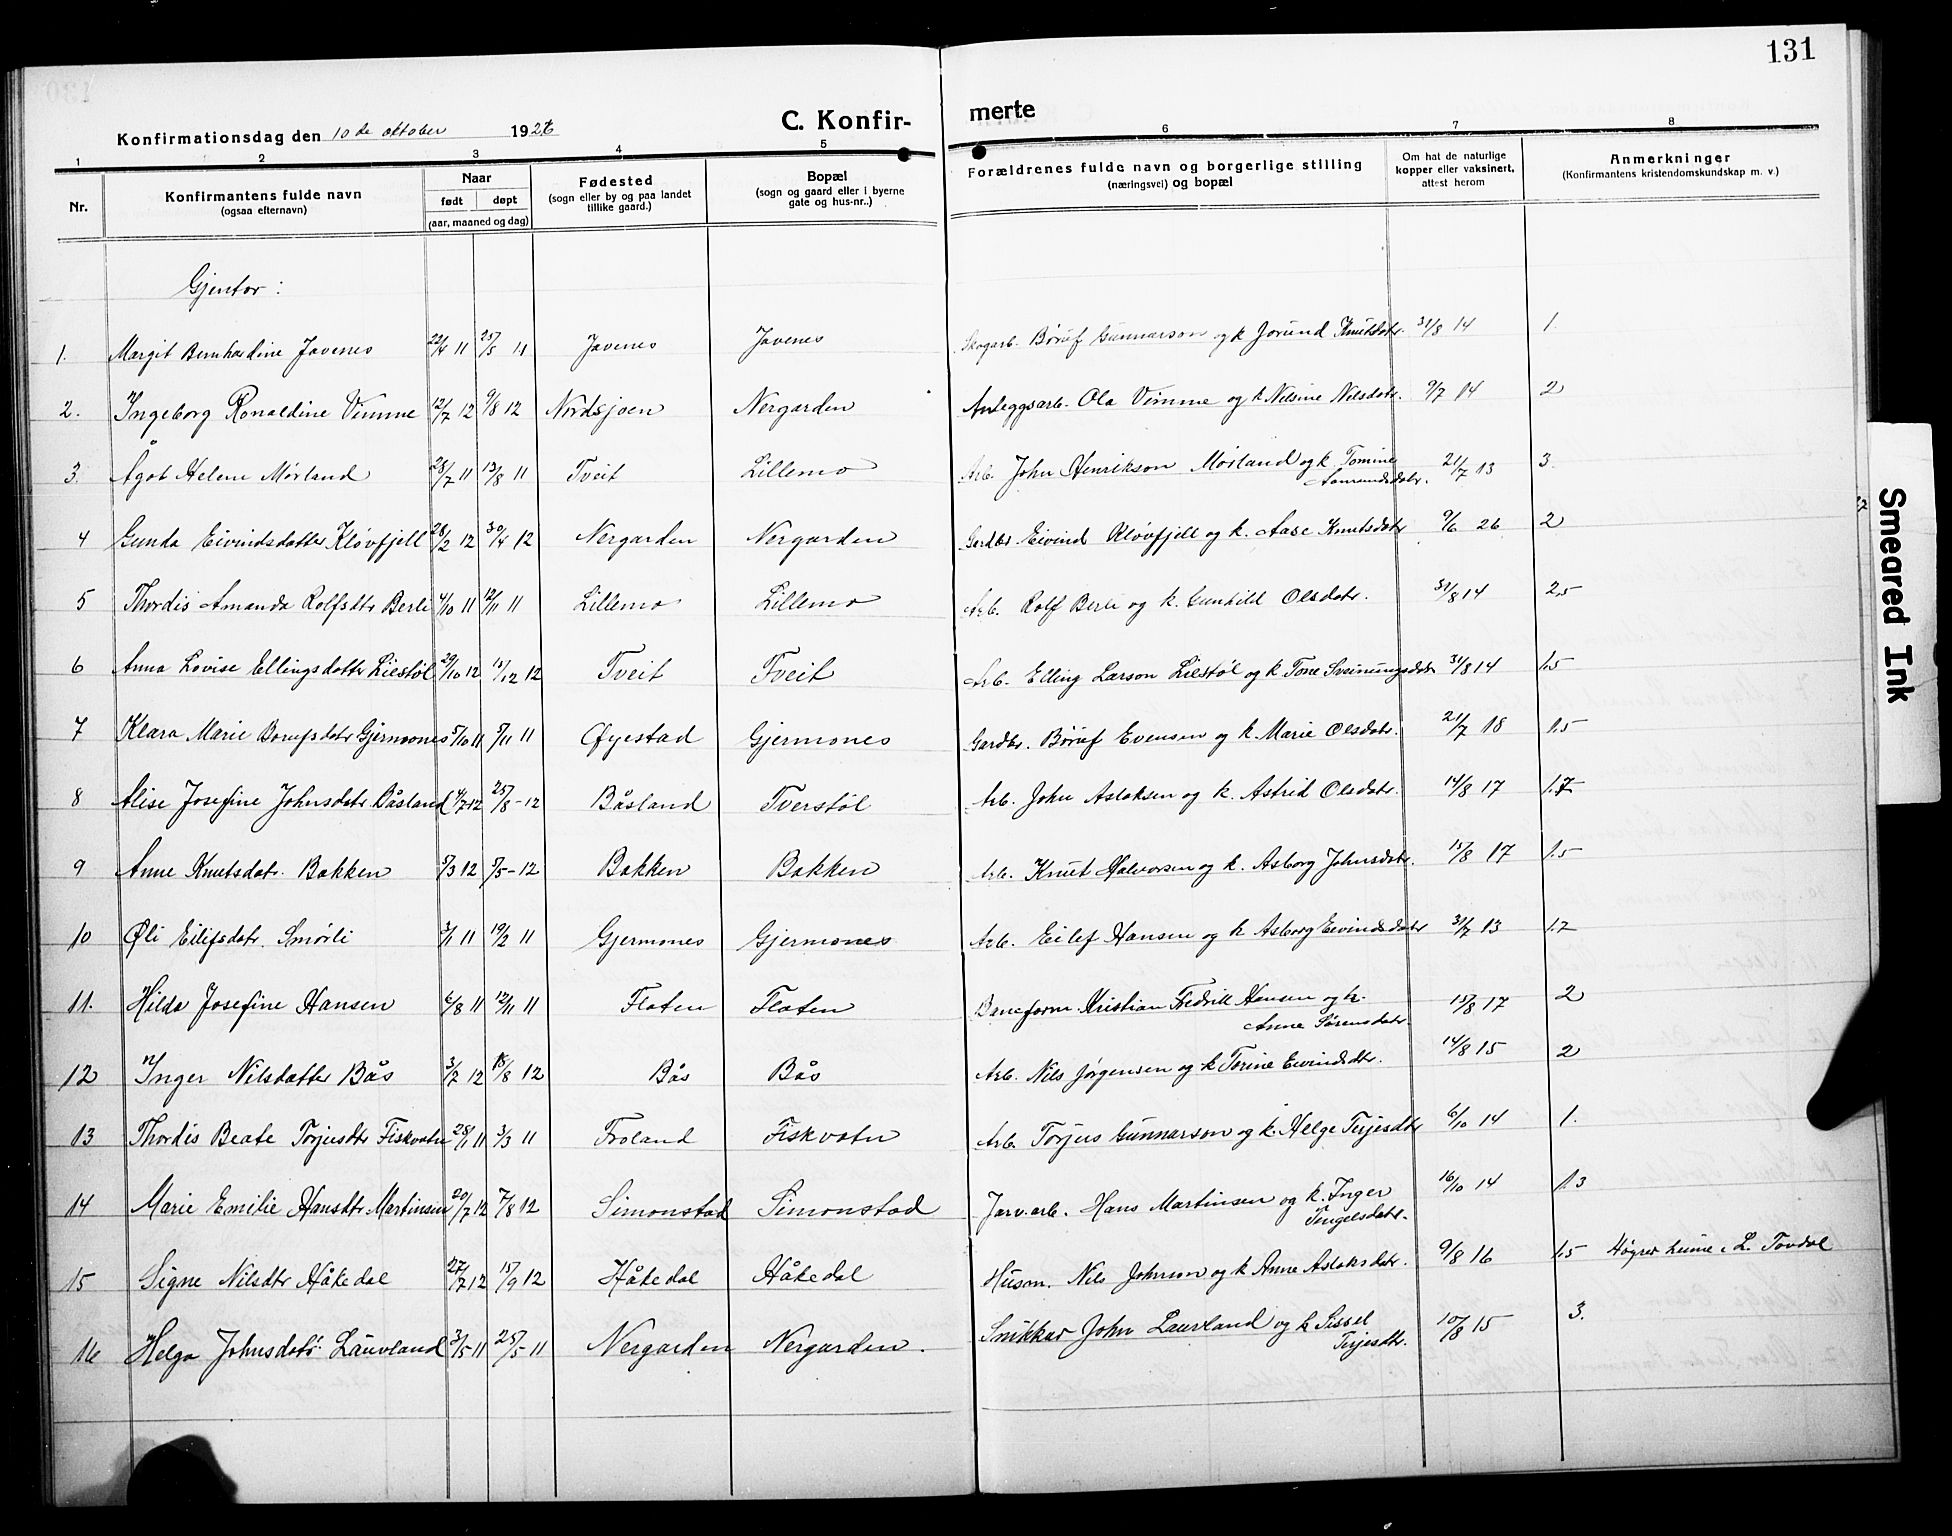 131
Konfirmationsdag den 10 de oktober 1926
C. Konfir-
merte
1 2 3 4 5 6 7 8
Nr.
Konfirmantens fulde navn
(ogsaa efternavn)
Naar
født døpt
(aar, maaned og dag)
Fødested
(sogn eller by og paa landet
tillike gaard.)
Bopæl
(sogn og gaard eller i byerne
gate og hus-nr..)
Forældrenes fulde navn og borgerlige stilling
(næringsvei) og bopæl
Om hat de naturlige
kopper eller vaksinert,
attest herom
Anmerkninger
(Konfirmantens kristendomskundskap m. v.)
Gjentor:
1. Margit Bernhardine Javenes 22/4 11 25/5 11 Javenes Javenes Skogarb. Børuf Gunnarson og k Jorund Knutsdtr. 31/8 14 1.
2. Ingeborg Ronaldine Vimme 12/7 12 9/8 12 Nordsjoen Nergarden Anleggsarb. Ola Vimme og k Nilsine Nilsdatr. 9/7 14 2
3. Ågot Helene Mørland 28/7 11 13/8 11 Tveit Lillemo Arb. John Henrikson Mørland og k Tomine
Aamundsdatr. 21/7 13 3.
4 Gunda Eivindsdatter Kløvfjell 28/2 12 30/4 12 Nergarden Nergarden Gardbr. Eivind Kløvfjell og k. Aase Knutsdatr 9/6 26 2
5 Thordis Amanda Rolfsdtr Berli 4/10 11 12/11 11 Lillemo Lillemo Arb. Rolf Berli og k. Gunhild Olsdatr. 31/8 14 2,5
6 Anna Lovise Ellingsdatter Liestøl 29/10 12 15/12 12 Tveit Tveit Arb. Elling Larson Liestøl og k Tone Sveinungsdtr 31/8 14 1.5
7 Klara Marie Borufsdatr Gjermones 5/10 11 5/11 11 Øyestad Gjermones Gardbr. Børuf Evensen og k. Marie Olsdatr. 21/7 18 1.5
8 Alise Josefine Johnsdatr Båsland 4/7 12 25/8 - 12 Båsland Tverstøl Arb. John Aslaksen og k. Astrid Olsdatr. 14/8 17 1.7
9 Anne Knutsdatr. Bakken 5/3 12 5/5 - 12 Bakken Bakken Arb. Knut Halvorsen og k. Asborg Johnsdatr. 15/8 17 1.5
10 Øli Eilifsdatr. Smørli 3/1 11 19/2 11 Gjermones Gjermones Arb. Eilef Hansen og k Asborg Eivindsdatr 31/7 13 1.7
11. Hilda Josefine Hansen 6/8 11 12/11 11 Flaten Flaten Baneform. Kristian Fredrik Hansen og k.
Anne Sørensdatr. 15/8 17 2
12 Inger Nilsdatter Bås 3/7 12 18/8 12 Bås Bås Arb. Nils Jørgensen og k Torine Eivindsdtr. 14/8 15 2
13 Thordis Beate Torjusdtr Fiskvatn 28/1 11 3/3 11 Froland Fiskvatn Arb. Torjus Gunnarson og k. Helge Terjesdtr 6/10 14 1.
14 Marie Emilie Hansdtr Martinsen 20/7 12 7/8 12 Simonstad Simonstad Jarv.arb. Hans Martinsen og k. Inger
Tengelsdatr. 16/10 14 1.3
15 Signe Nilsdtr Håkedal 27/7 12 15/9 12 Håkedal Håkedal Husm. Nils Johnson og k Anne Aslaksdatr. 9/8 16 1.5 Høgrer heime i L. Tovdal
16 Helga Johnsdatr. Lauvland 3/5 11 25/5 11 Nergarden Nergarden. Snikkar John Lauvland og k Sissel
Terjesdtr. 10/8 15 3.
Smeared Ink